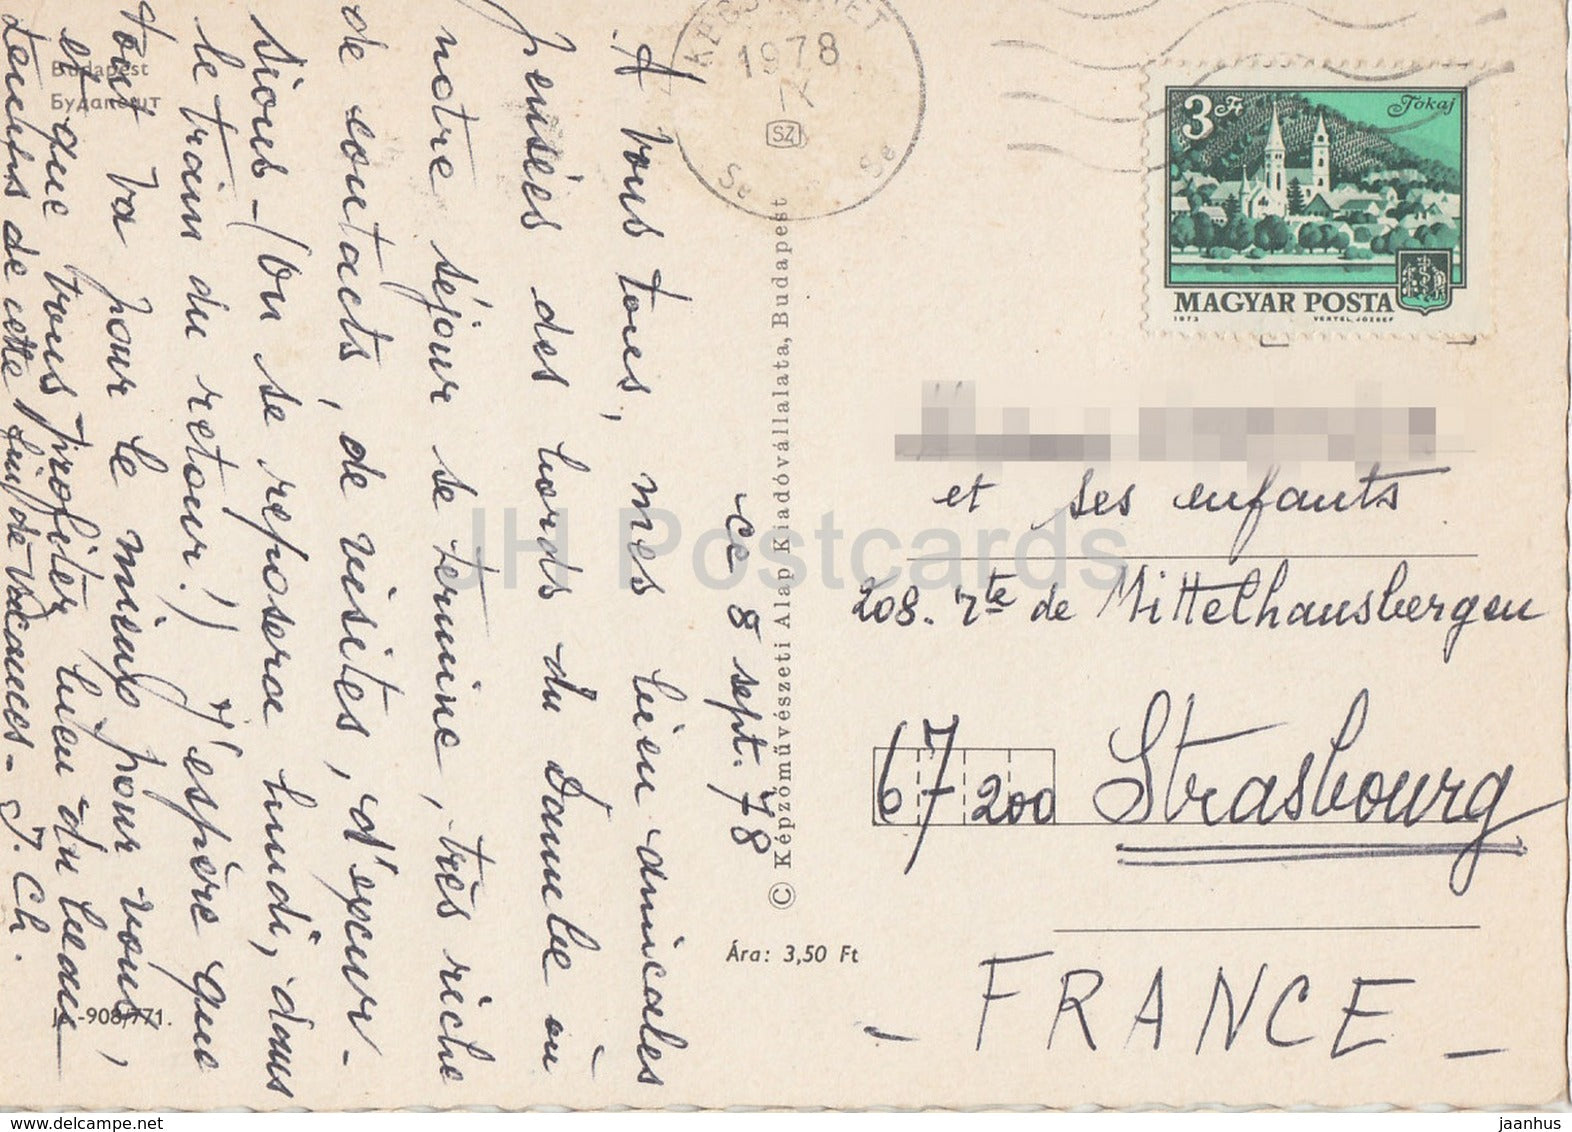 Budapest
Будапешт
ce 8 sept. 78
A vous tous, mes bien amicales
pensées des bords du Danube où
notre séjour se termine, très riche
de contacts, de visites, d'excur-
sions - (on se reposera lundi, dans
le train du retour!) J'espère que
tout va pour le mieux pour vous,
et que vous profitez bien du beau
temps de cette fin de vacances - J. Ch.
-908/771.
© Képzőművészeti Alap Kiadóvállalata, Budapest
Ára: 3,50 Ft
1978
SZ
3 Ft
Tokaj
MAGYAR POSTA
1973
VERTEL JÓZSEF
et ses enfants
208. rte de Mittelhausbergen
67200 Strasbourg
- FRANCE -
JH Postcards
delcampe.net
jaanhus